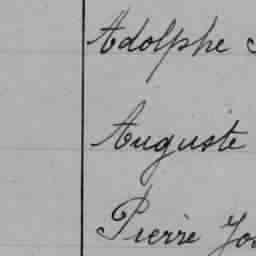 Adolphe
Auguste
Pierre